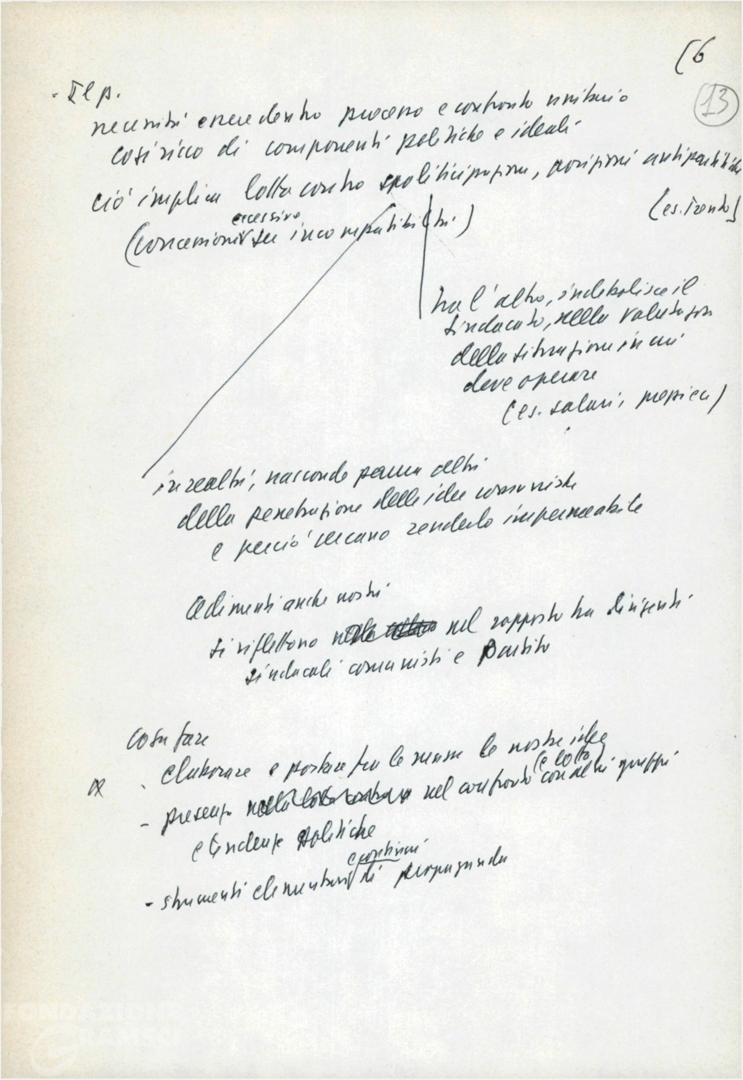 (6
13
- Il p.
necessità essere dentro processo e confronto unitario
così ricco di componenti politiche e ideali
ciò implica lotta contro spoliticizzazione, posizioni antipartitiche
(es. Trento)
eccessive
(concessioni su incompatibilità)
tra l'altro, indebolisce il
sindacato, nella valutazione
della situazione in cui
deve operare
(es. salari,
in realtà, nasconde paura altri
della penetrazione delle idee comuniste
e perciò cercano renderlo impermeabile
Cedimenti anche nostri
si riflettono nel rapporto tra dirigenti
sindacali comunisti e Partito
Cosa fare
- elaborare e portare tra le masse le nostre idee
(e lotta)
- presenza nel confronto con altri gruppi
e tendenze politiche
e continui
- strumenti elementari di propaganda
FONDAZIONE
GRAMSCI